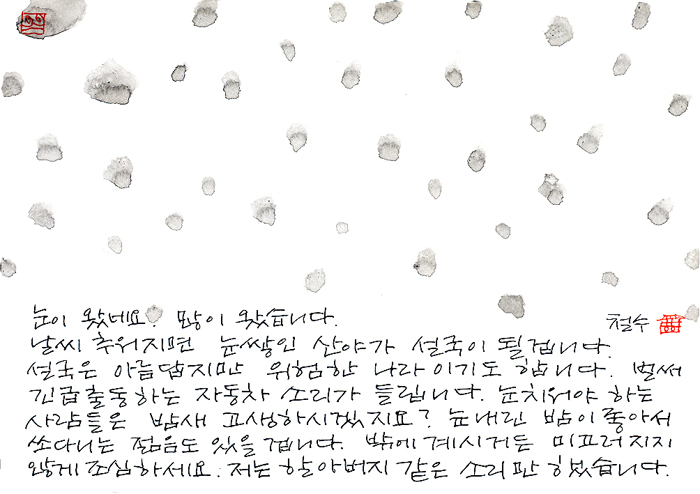 눈이 왔네요. 많이 왔습니다.
철수
날씨 추워지면 눈쌓인 산야가 설국이 될겁니다.
설국은 아름답지만 위험한 나라이기도 합니다. 벌써
긴급출동하는 자동차 소리가 들립니다. 눈치워야 하는
사람들은 밤새 고생하시겠지요? 눈내린 밤이 좋아서
쏘다니는 젊음도 있을겁니다. 밖에 계시거든 미끄러지지
않게 조심하세요. 저는 할아버지 같은 소리만 하였습니다.